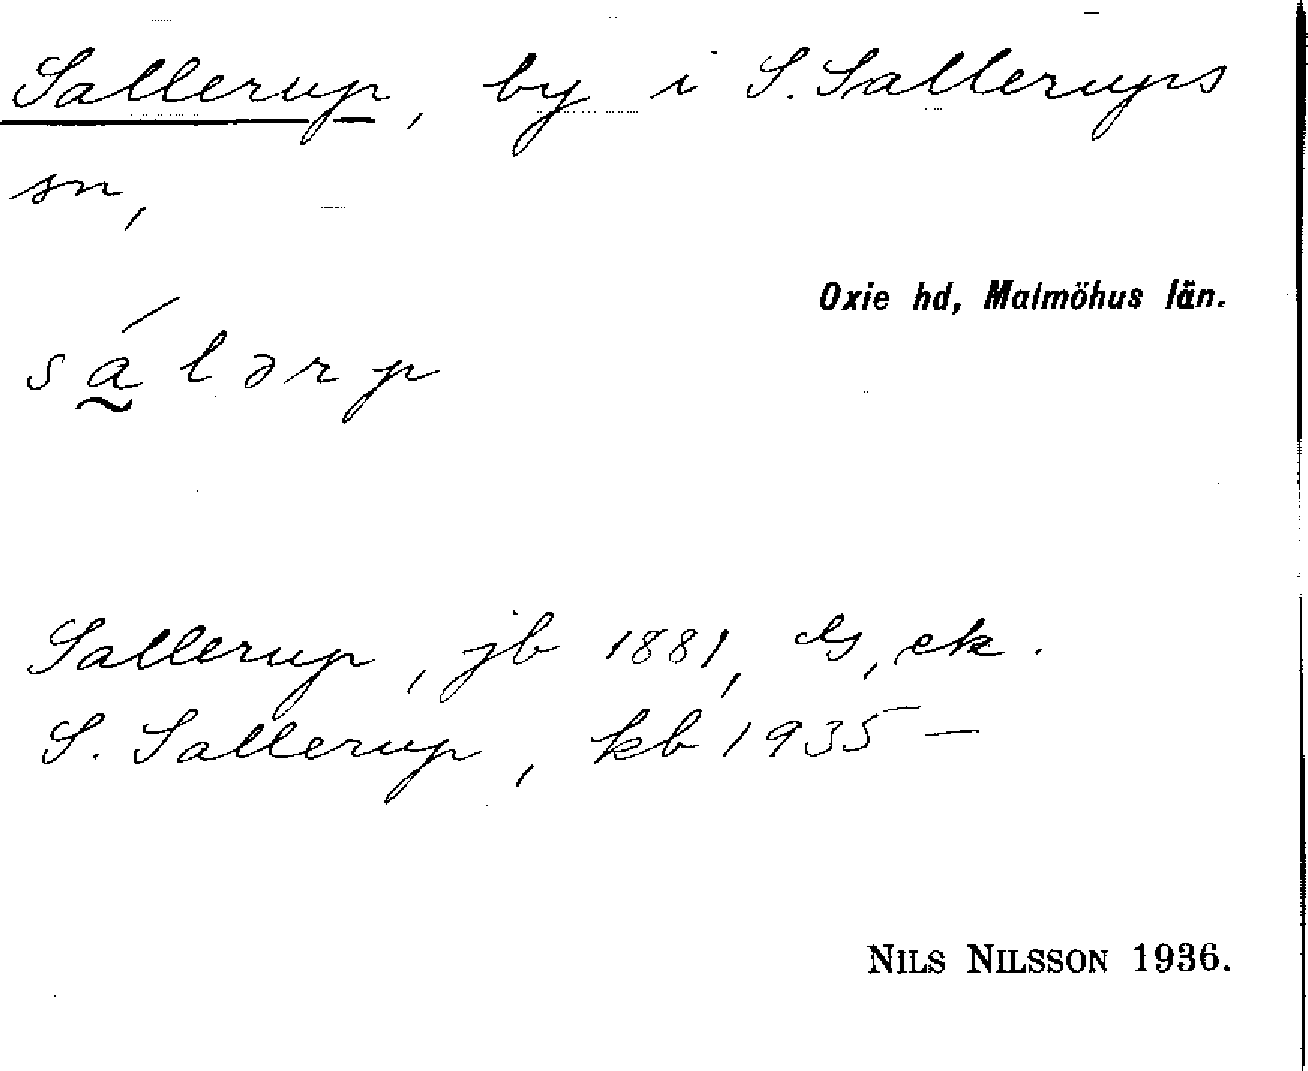 Sallerup, by i S. Sallerups
sn,
Oxie hd, Malmöhus län.
sá̰lərp
Sallerup, jb 1881, Gs, ek.
S. Sallerup, kb 1935 —
NILS NILSSON 1936.